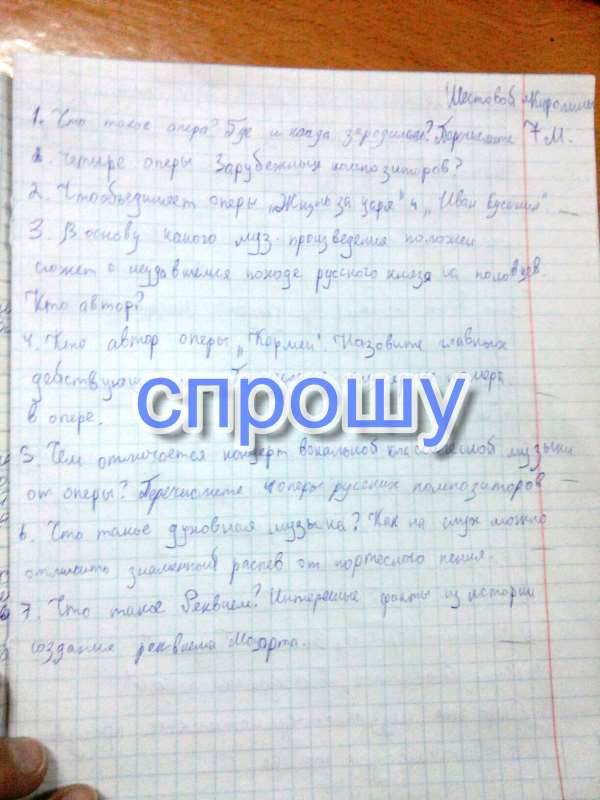 Шестовой Каролины
7 М.
1. Что такое опера? Где и когда зародилась? Перечислите
четыре оперы Зарубежных композиторов?
2. Что объединяет оперы "Жизнь за царя" и "Иван Сусанин".
3. В основу какого муз. произведения положен
сюжет о неудавшемся походе русского князя на половцев.
Кто автор?
4. Кто автор оперы "Кармен". Назовите главных
в опере.
спрошу
5. Чем отличается концерт вокальной классической музыки
от оперы? Перечислите 4 оперы русских композиторов
6. Что такое духовная музыка? Как на слух можно
отличить знаменный распев от портесного пения.
7. Что такое Реквием? Интересные факты из истории
создания реквиема Моцарта.